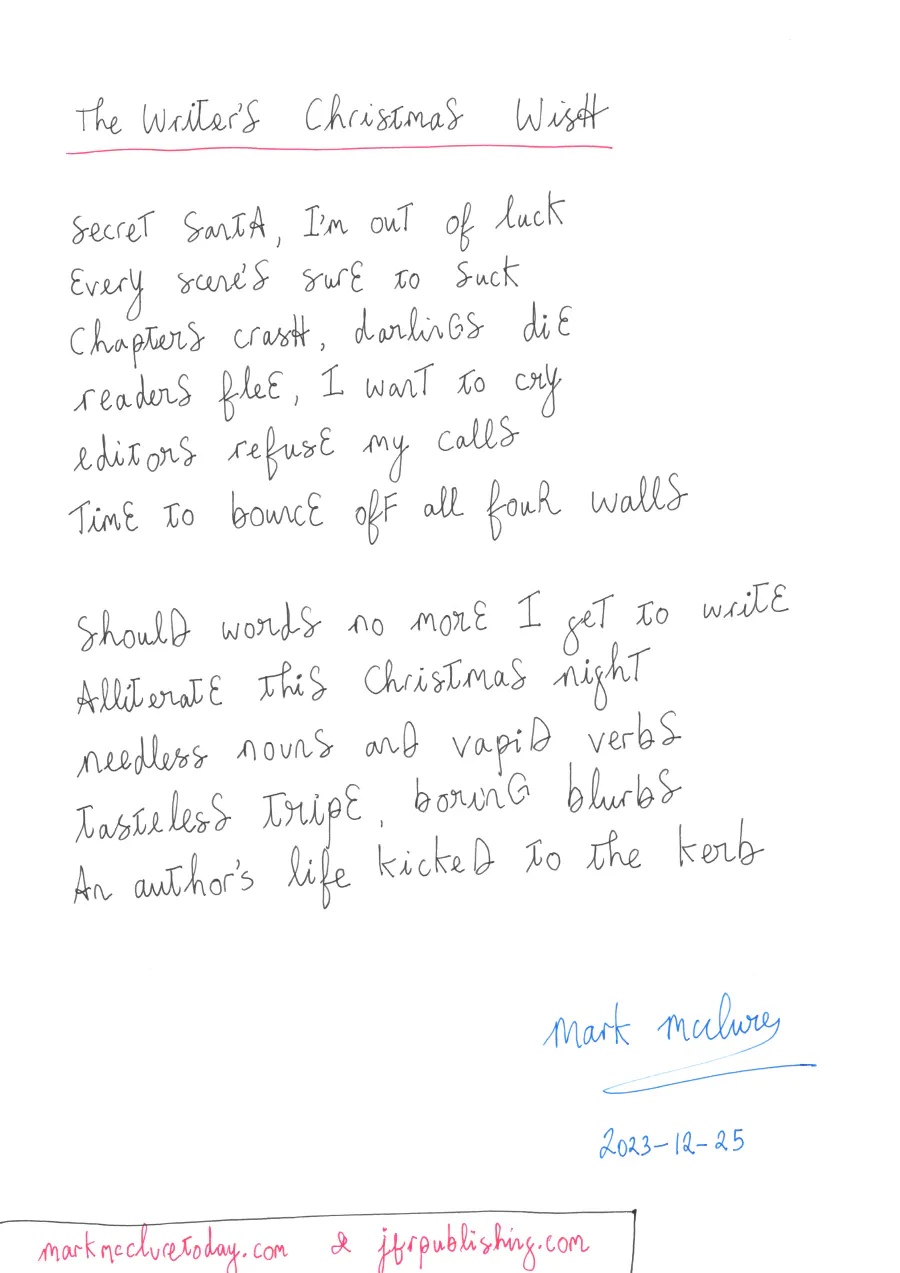 The Writer's Christmas Wish
Secret Santa, I'm out of luck
Every scene's sure to suck
Chapters crash, darlings die
readers flee, I want to cry
editors refuse my calls
Time to bounce off all four walls
Should words no more I get to write
Alliterate this Christmas night
needless nouns and vapid verbs
Tasteless tripe, boring blurbs
An author's life kicked to the kerb
Mark McClure
2023-12-25
markmccluretoday.com & jfrpublishing.com